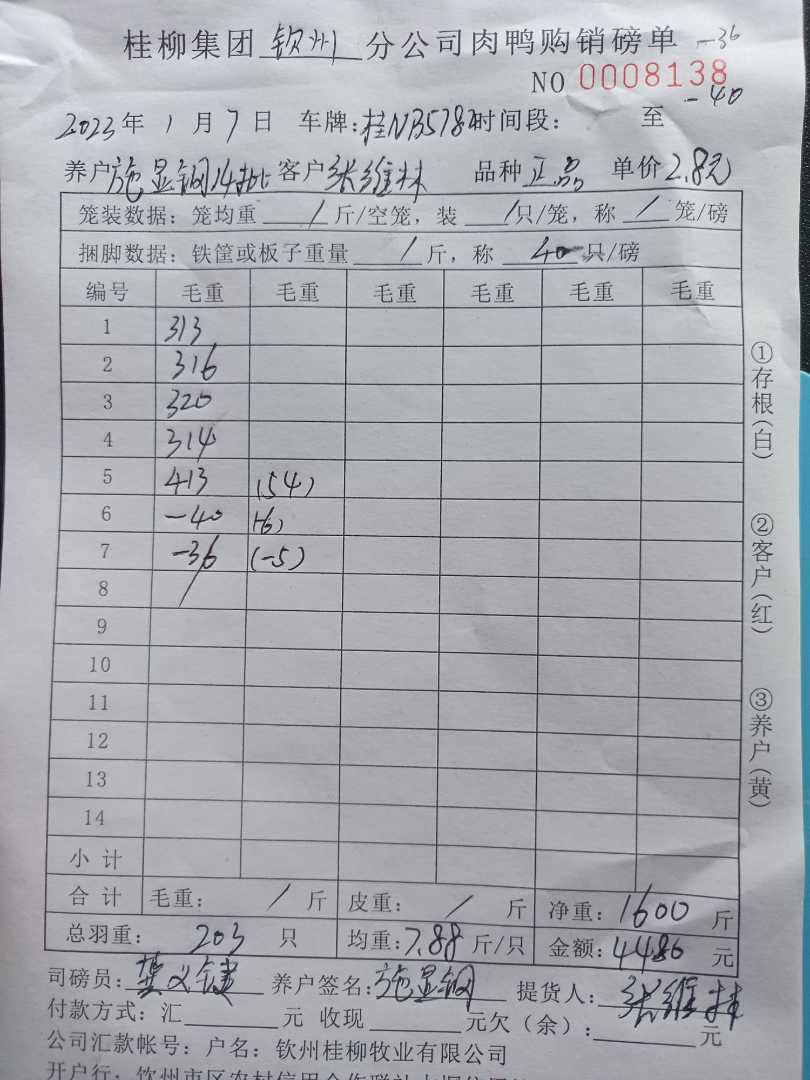 桂柳集团 钦州 分公司肉鸭购销磅单 -36
NO 0008138
-40
2023年 1月 7日 车牌:桂NB5787时间段: 至
养户施显钢14批 客户张维林 品种 正品 单价 2.8元
笼装数据: 笼均重 / 斤/空笼, 装 / 只/笼, 称 / 笼/磅
捆脚数据: 铁筐或板子重量 / 斤, 称 40 只/磅
编号 毛重 毛重 毛重 毛重 毛重 毛重
1 313
2 316
3 320
4 314
5 413 (54)
6 -40 (-6)
7 -36 (-5)
8 /
9
10
11
12
13
14
小 计
合 计 毛重: / 斤 皮重: / 斤 净重: 1600 斤
总羽重: 203 只 均重: 7.88 斤/只 金额: 4480 元
①存根(白) ②客户(红) ③养户(黄)
司磅员: 养户签名:施显钢 提货人: 张维林
付款方式: 汇 元 收现 元欠(余): 元
公司汇款帐号: 户名: 钦州桂柳牧业有限公司
开户行: 钦州市区农村信用合作联社